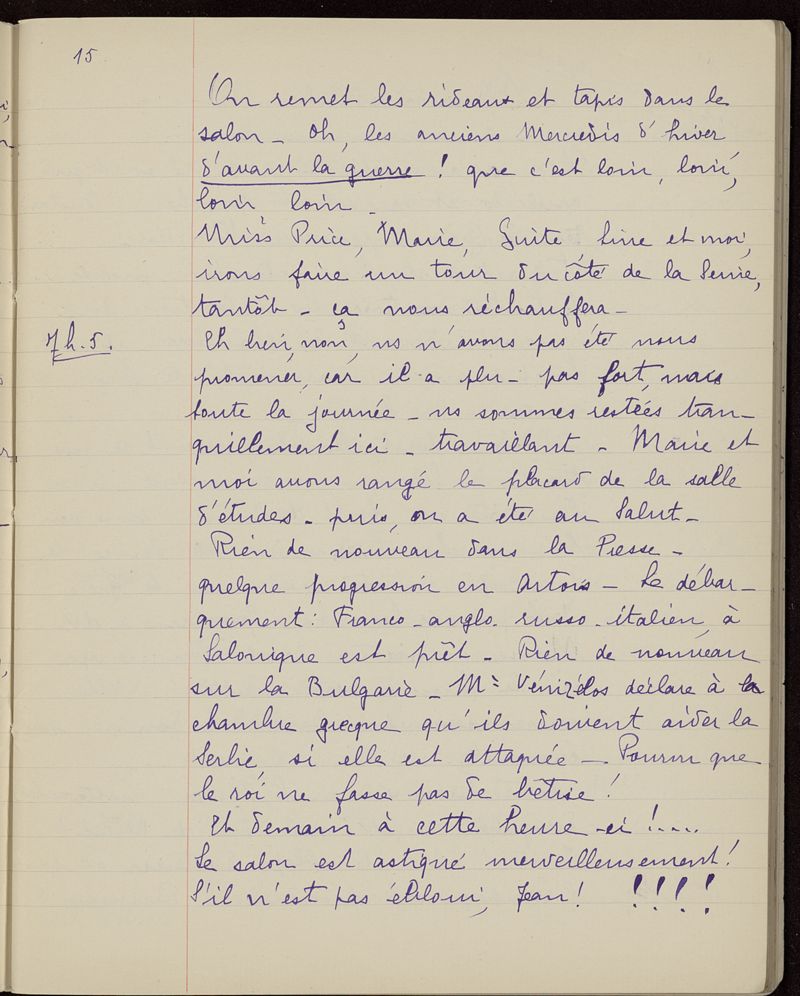 15
On remet les rideaux et tapis dans le
salon - Oh, les anciens Mercredis d'hiver
d'avant la guerre ! que c'est loin, loin,
loin loin -
Miss Price, Marie, Guite Line et moi,
irons faire un tour du côté de la Seine,
tantôt - ça nous réchauffera -
7h.5.
Eh bien, non, ns n'avons pas été nous
promener, car il a plu - pas fort, mais
toute la journée - ns sommes restées tran-
quillement ici - travaillant - Marie et
moi avons rangé le placard de la salle
d'études - puis, on a été au Salut -
Rien de nouveau dans la Presse -
quelque progression en Artois - Le débar-
quement : Franco-anglo-russo-italien, à
Salonique est prêt - Rien de nouveau
sur la Bulgarie - Mr Vénizélos déclare à la
chambre grecque qu'ils doivent aider la
Serbie, si elle est attaquée - Pourvu que
le roi ne fasse pas de bêtise !
Et demain à cette heure-ci !....
Le salon est astiqué merveilleusement !
S'il n'est pas ébloui, Jean ! !!!!